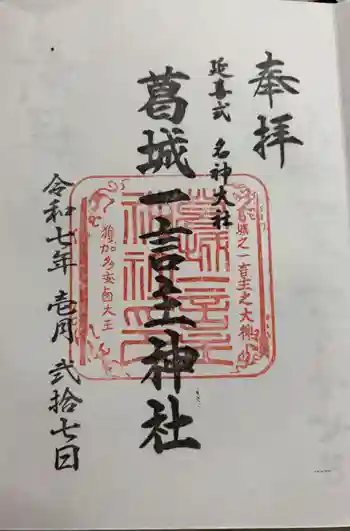 奉拝
延喜式 名神大社
葛城一言主神社
葛城之一言主之大神
葛城一言主
神社
獲加多支鹵大王
令和七年 壱月 弐拾七日